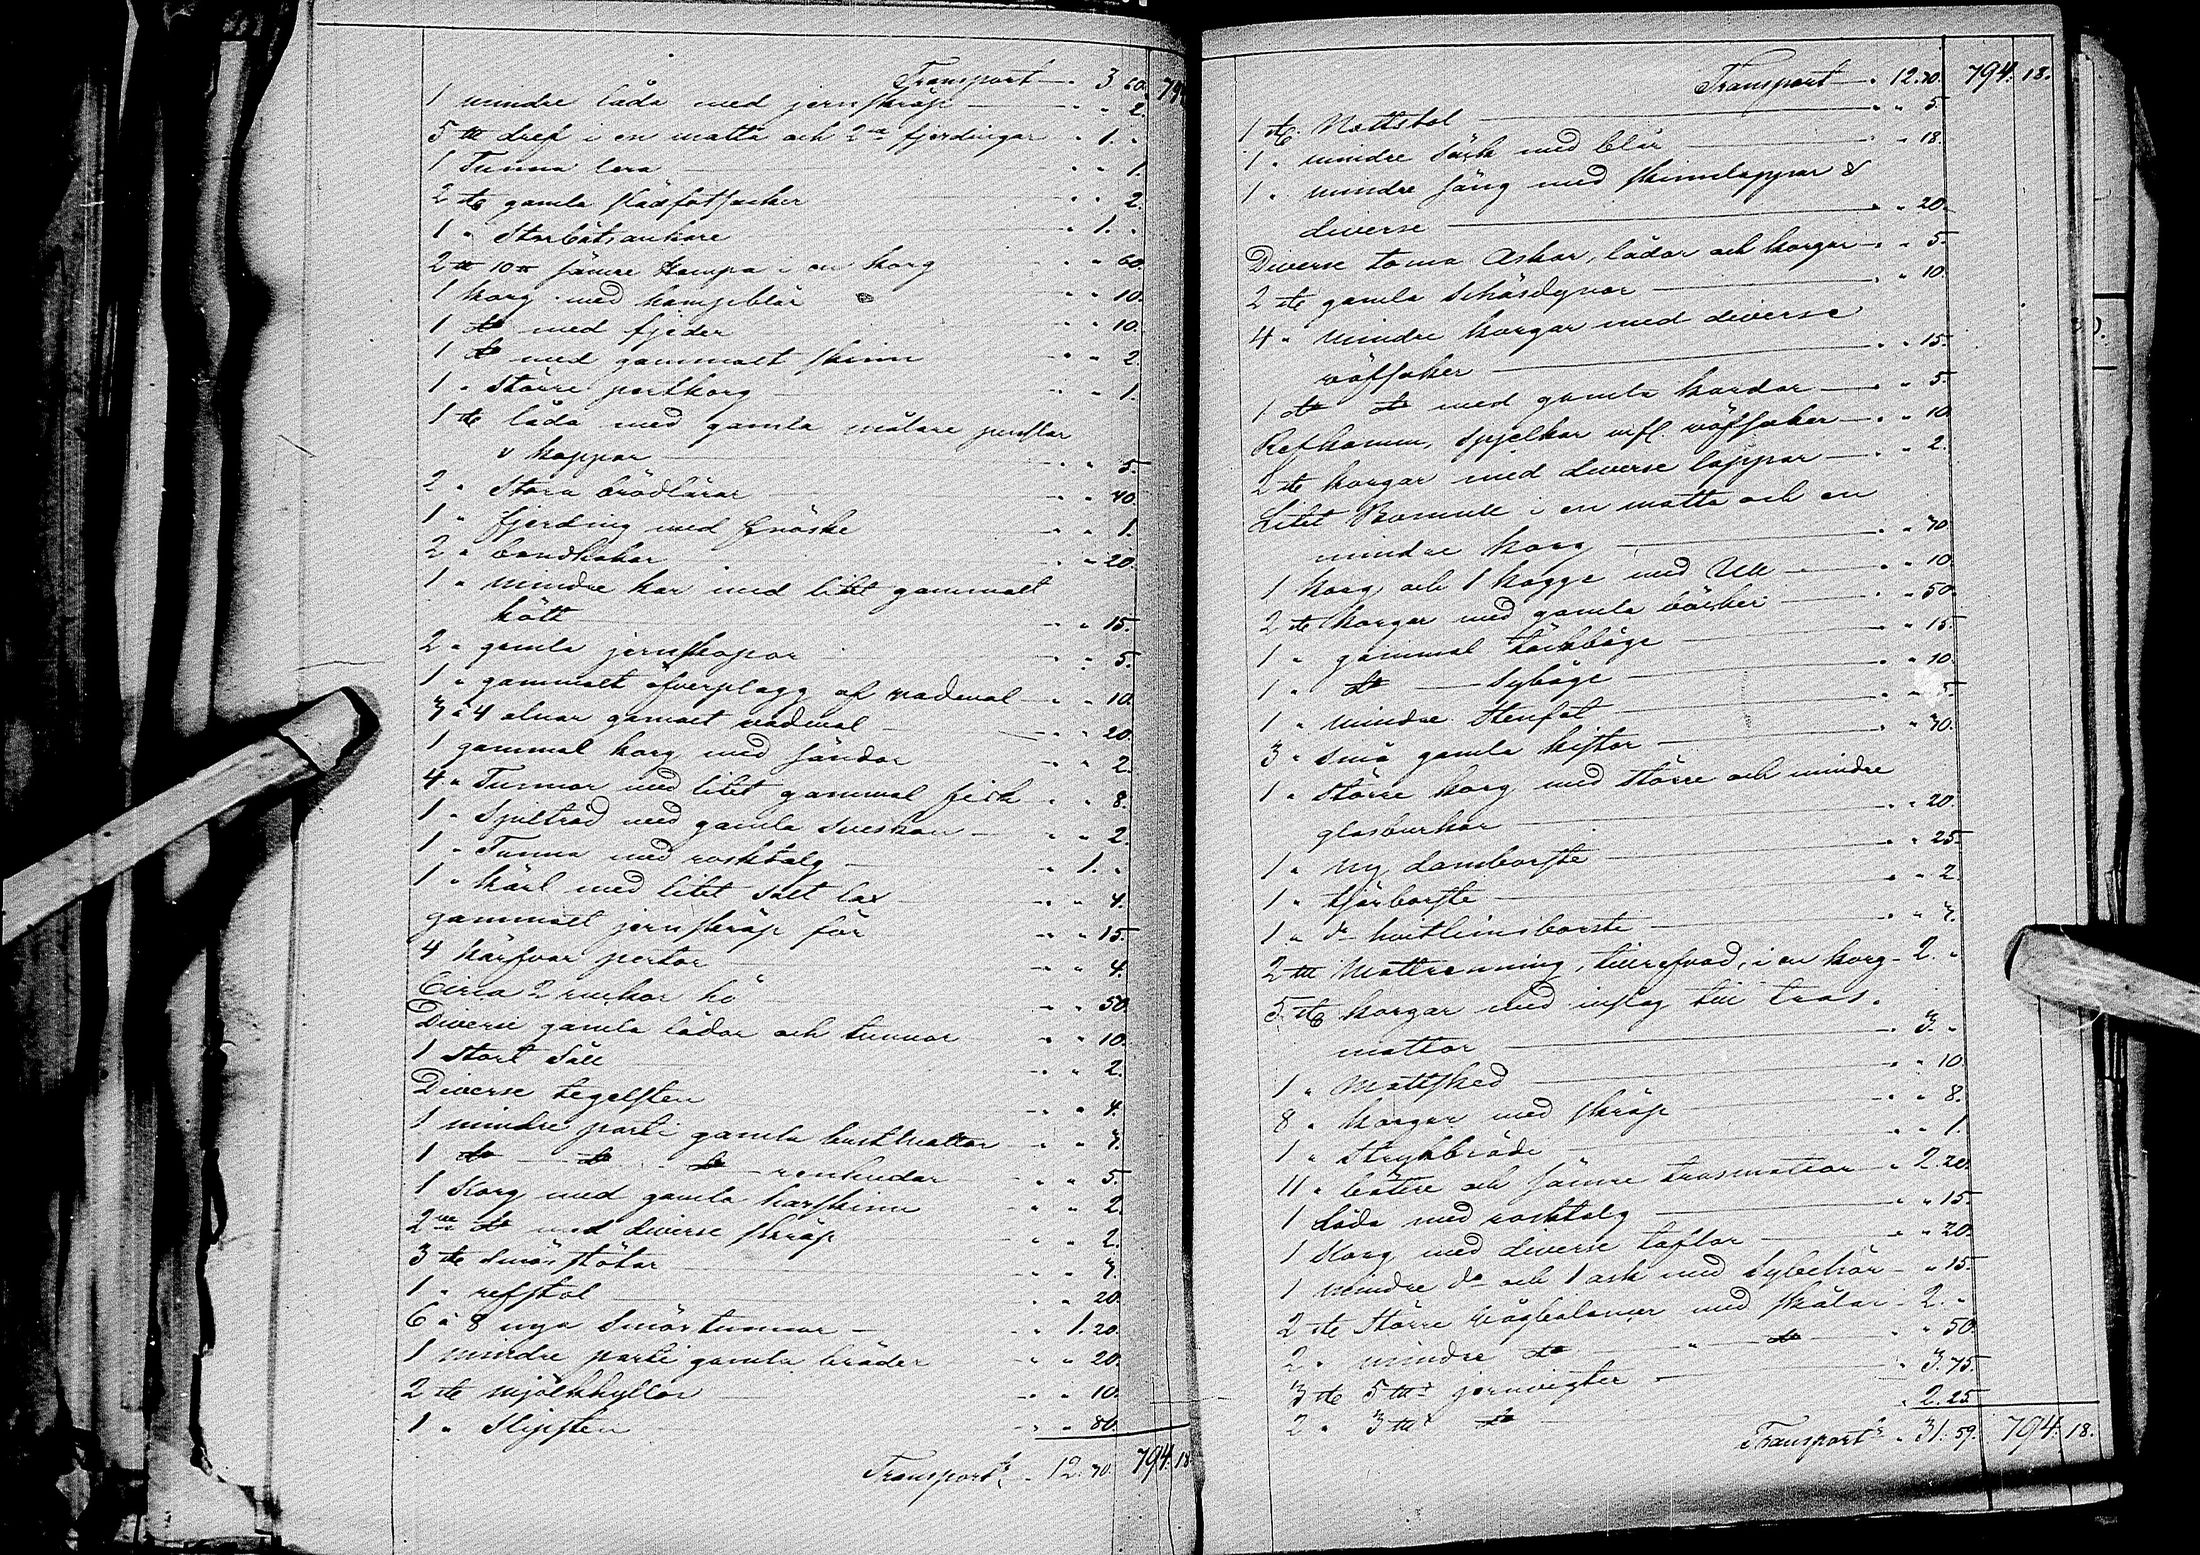 Transport 3 60. 794
1 mindre låda med jernskräp " 2.
5 ℔ dref i en matta och 2ne fjerdingar 1. "
1 Tunna lera " 1.
2 st gamla slädfotsäcker " 2.
1 " Storbåtsankare 1. "
2 ℔ 10 ℔ sämre hampa i en korg " 60.
1 korg med hampblår " 10.
1 do med fjeder " 10.
1 do med gammalt skinn " 2.
1 " större pertkorg " 1.
1 st låda med gamla målare penslar
& koppar " 5.
2 " Stora brödlårar " 40.
1 " fjerding med fnöske " 1.
2 " bandhakar " 20.
1 " mindre kar med litet gammalt
kött " 15.
2 " gamla jernskopor " 5.
1 " gammalt öfverplagg af vadmal " 10.
3 à 4 alnar gammalt vadmal " 20.
1 gammal korg med sändor " 2.
4 " Tunnor med litet gammal fisk " 8.
1 " Spiltråd med gamla sveskon " 2.
1 " Tunna med rosktalg 1. "
1 " kärl med litet salt lax " 4.
gammalt jernskräp för " 15.
4 kärfvar pertor " 4.
Circa 2 ruckor hö " 50.
Diverse gamla lådor och tunnor " 10.
1 stort såll " 2.
Diverse tegelsten " 4.
1 mindre parti gamla bastmattor " 7.
1 do do do renhudar " 5.
1 Korg med gamla harskinn " 2.
2ne do med diverse skräp " 2.
3 st smörstötar " 7.
1 " refstol " 20.
6 à 8 nya Smörtunnor 1. 20.
1 mindre parti gamla bräder " 20.
2 st mjölkhyllor " 10.
1 " Slipsten " 80.
Transport 12. 70. 794. 18
Transport 12. 70. 794. 18.
1 st. Nattstol " 5.
1 " mindre säck med blår " 18.
1 " mindre säng med skinnlappar &
diverse " 20.
Diverse toma Askar, lådor och korgar " 5.
2 st gamla schäsdynor " 10.
4 " mindre korgar med diverse
väfsaker " 15.
1 do do med gamla kardor " 5.
Refkamm, spjelkar mfl. väfsaker " 10.
2 st korgar med diverse lappar " 2.
Litet Bomull i en matta och en
mindre korg " 70.
1 korg och 1 kagge med Ull " 10.
2 st korgar med gamla böcker " 50.
1 " gammal täckbåge " 15.
1 " do Sybåge " 10.
1 " mindre Stenfat " 5.
3 " små gamla kistor " 70.
1 " större korg med större och mindre
glasburkar " 20.
1 " ny damborste " 25.
1 " tjärborste " 2.
1 " do hvitlimsborste " 7.
2 ℔ Mattrenning, tillrefvad, i en korg 2. "
5 st korgar med inslag till tras-
mattor 3. "
1 " Mattsked " 10.
8 " korgar med skräp " 8.
1 " Strykbräde " 1.
11 " bättre och sämre trasmattor 2. 20.
1 låda med rosktalg " 15.
1 Korg med diverse taflor " 20.
1 mindre do och 1 ask med sybehör " 15.
2 st större vågbalanser med skålar 2. "
2 " mindre do " do " 50.
3 st 5 ℔s jernvigter 3. 75.
2 " 3 ℔s do 2. 25.
Transport 31. 59. 794. 18.